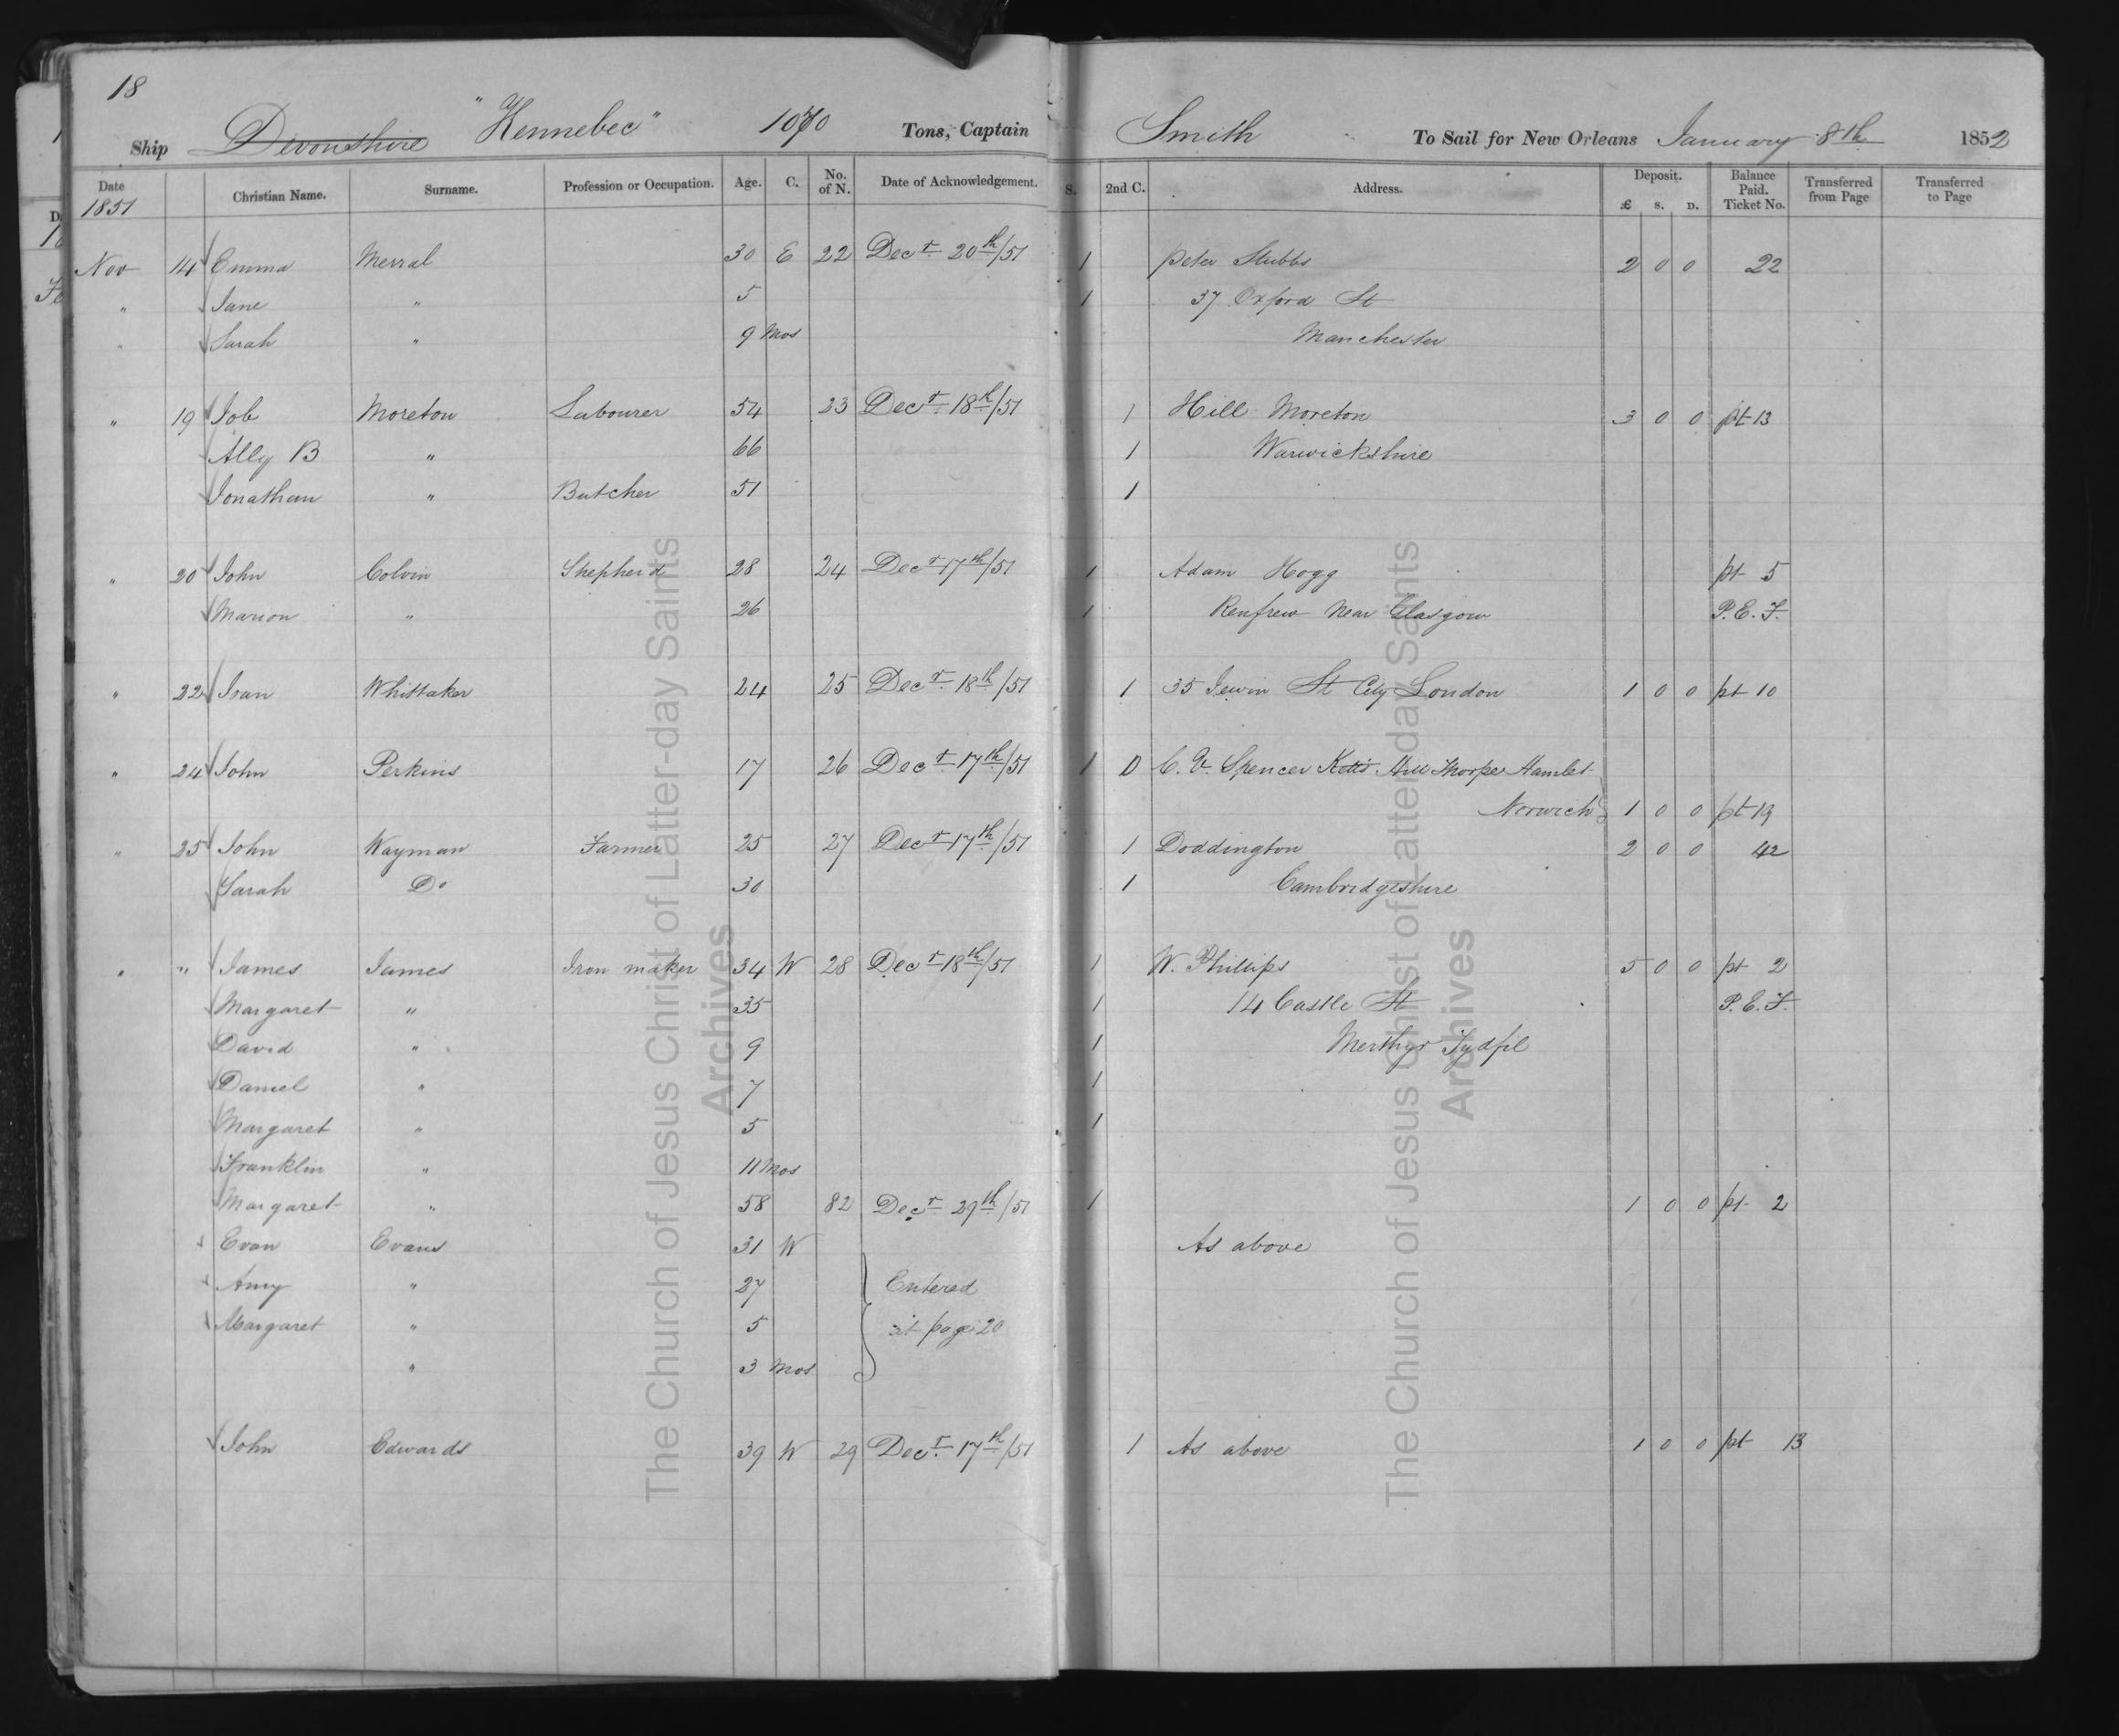 18
Ship Devonshire "Kennebec" 1070 Tons, Captain Smith To Sail for New Orleans January 8th 1852
Date 1851 Christian Name. Surname. Profession or Occupation. Age. C. No. of N. Date of Acknowledgement. S. 2nd C. Address. Deposit. £ S. D. Balance Paid. Ticket No. Transferred from Page Transferred to Page
Nov 14 Emma Merral 30 E 22 Decr 20th/51 1 Peter Stubbs 2 0 0 22
" Jane " 5 1 37 Oxford St
" Sarah " 9 Mos Manchester
" 19 Job Moreton Labourer 54 23 Decr 18th/51 1 Hill Moreton 3 0 0 pt 13
Ally B " 66 1 Warwickshire
Jonathan " Butcher 51 1
" 20 John Colvin Shepherd 28 24 Decr 17th/51 1 Adam Hogg pt 5
Marion " 26 1 Renfrew Near Glasgow P.E.F.
" 22 Ivan Whittaker 24 25 Decr 18th/51 1 35 Jewin St City London 1 0 0 pt 10
" 24 John Perkins 17 26 Decr 17th/51 1 D C. V. Spencer Ketts Hill Thorpe Hamlet
Norwich 1 0 0 pt 19
" 25 John Wayman Farmer 25 27 Decr 17th/51 1 Doddington 2 0 0 42
Sarah Do 30 1 Cambridgeshire
" " James James Iron maker 34 W 28 Decr 18th/51 1 W. Phillips 5 0 0 pt 2
Margaret " 35 1 14 Castle St P.E.F.
David " 9 1 Merthyr Tydfil
Daniel " 7 1
Margaret " 5 1
Franklin " 11 Mos
Margaret " 58 82 Decr 29th/51 1 1 0 0 pt 2
Evan Evans 31 W As above
Amy " 27 Entered
Margaret " 5 at page 20
" 3 Mos
John Edwards 39 W 29 Decr 17th/51 1 As above 1 0 0 pt 13
The Church of Jesus Christ of Latter-day Saints
Archives
The Church of Jesus Christ of Latter-day Saints
Archives